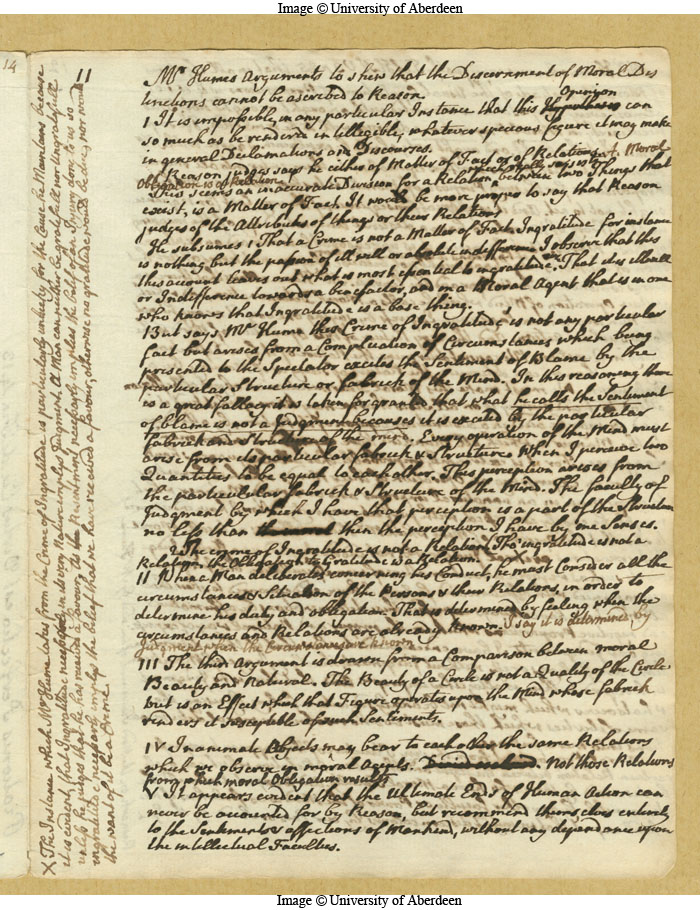 Image © University of Aberdeen
14
11
Mr Humes Arguments to shew that the Discernment of Moral Dis
tinctions cannot be ascribed to Reason
Opinion
1 It is impossible, in any particular Instance that this Hypothesis can
so much as be rendered intellegible, whatever specious figure it may make
in general Declamations and Discourses.
Reason judges says he either of Matter of Fact or of Relations. Moral
Obligation is a Relation
This seems an inaccurate Division for a Relation between two Things that
exist, is a Matter of Fact. It would be more proper to say that Reason
judges of the Attributes of things or their Relations
He subsumes 1 That a Crime is not a Matter of Fact. Ingratitude for instance
is nothing but the passion of ill will or absolute indifference. I observe that this
this account leaves out what is most essential to ingratitude. That it is illwill
or Indifference towards a benefactor, and in a Moral Agent that is in one
who knows that Ingratitude is a base thing.
But says Mr Hume this Crime of Ingratitude is not any particular
fact but arises from a Complication of Circumstances which being
presented to the Spectator excites the Sentiment of Blame by the
particular Structure or fabrick of the Mind. In this reasoning there
is a great fallacy it is taken for granted that what he calls the Sentiment
of blame is not a Judgment because it is excited by the particular
fabrick and Structure of the mind. Every operation of the Mind must
arise from its particular fabrick & Structure. When I perceive two
Quantities to be equal to each other. This perception arises from
the particulular fabrick & Structure of the Mind. The faculty of
Judgment by which I have that perception is a part of the Structure
no less than then the perception I have by me Senses.
2 The crime of Ingratitude is not a Relation. Tho' ingratitude is not a
Relation the Obligation to Gratitude is a Relation X
II When a Man deliberates concerning his Conduct, he must Consider all the
circumstances & Situation of the Persons & their Relations, in order to
determine his duty and obligation. That is determined by feeling when the
circumstances and Relations are already known. I say it is determined by
Judgment when the Circumstances are known
III The third Argument is drawn from a Comparison between moral
Beauty and Natural. The Beauty of a Circle is not a Quality of the Circle
but is an Effect which that Figure operates upon the Mind whose fabrick
renders it susceptible of such Sentiments.
IV Inanimate Objects may bear to each other the same Relations
which we observe in moral Agents. Not those Relations
from which moral Obligation results
V It appears evident that the Ultimate Ends of Human Action can
never be accounted for by Reason, but recommend themselves entirely
to the Sentiments & affections of Mankind, without any dependance upon
the intellectual Faculties.
X The Instance which Mr Hume takes from the Crime of Ingratitude is particularly unlucky for the Cause he Maintains because
it is evident that Ingratitude necessarily in its very Nature implys Judgment. A Man can neither be grateful nor ungrateful
unless he judges that he has received a favour; as the Resentment necessarily implies the belief of an Injury done to us so
ingratitude necessarily implys the belief that we have received a favour, otherwise no gratitude would be due, nor would
the want of it be a Crime.
Image © University of Aberdeen